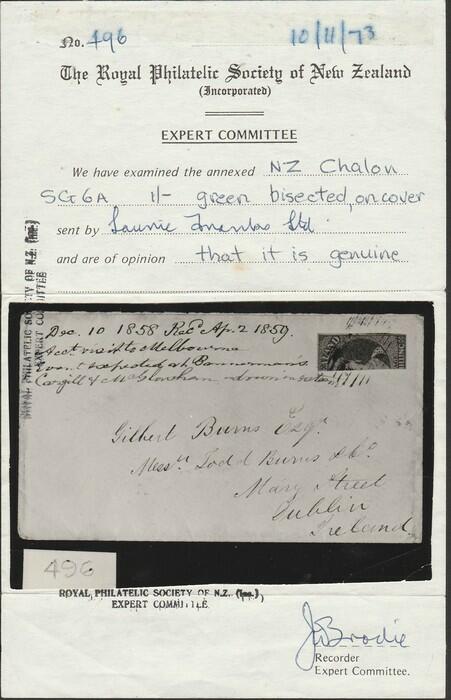 No. 496 10/11/73
The Royal Philatelic Society of New Zealand
(Incorporated)
EXPERT COMMITTEE
We have examined the annexed NZ Chalon
SG6A 1/- green bisected, on cover
sent by Laurie Franks Ltd.
and are of opinion that it is genuine
ROYAL PHILATELIC SOCIETY OF N.Z. (Inc.)
EXPERT COMMITTEE
Dec. 10 1858 Recd Ap. 2 1859.
Acct visit to Melbourne
Cargill &
Gilbert Burns Esqr
Messrs Todd Burns & Co.
Mary Street
Dublin
Ireland
496
ROYAL PHILATELIC SOCIETY OF N.Z. (Inc.)
EXPERT COMMITTEE
Brodie
Recorder
Expert Committee.